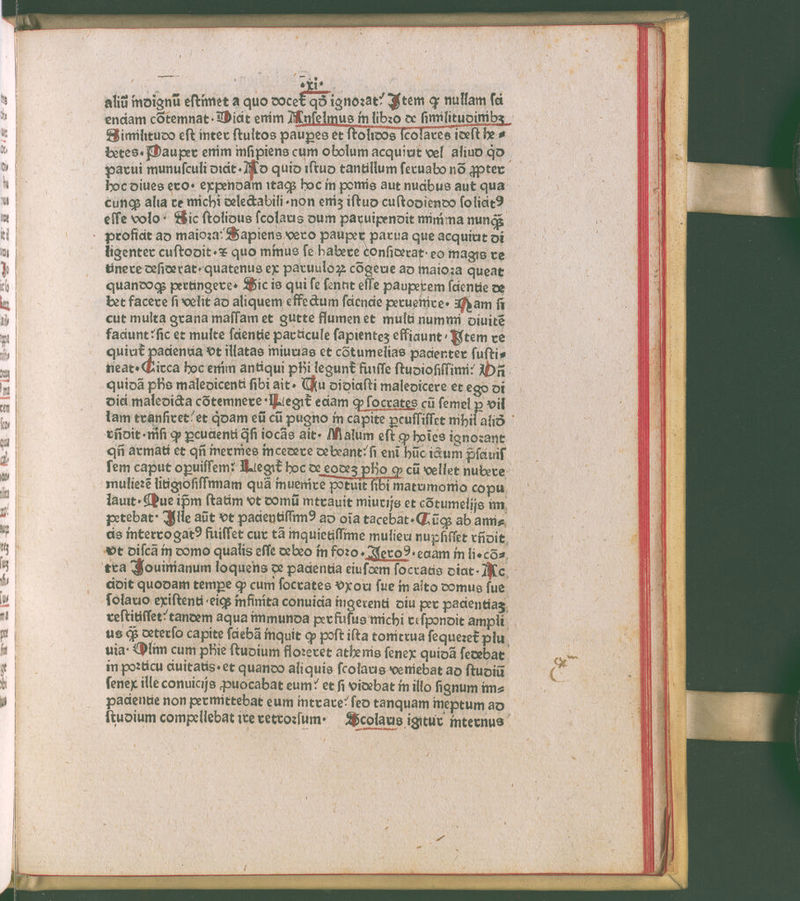 ·xi·
aliū indignū estimet a quo docet̄ qd̄ ignorat? Item ꝙ nullam sci
enciam cōtemnat· Dicit enim Anselmus in libro de similitudinibꝫ
Similitudo est inter stultos pauperes et stolidos scolares idest he⸗
betes· Pauper enim insipiens cum obolum acquirit vel aliud qd̄
parui munusculi dicit· Ad quid istud tantillum seruabo nō ꝓpter
hoc diues ero· expendam itaqꝫ hoc in pomis aut nucibus aut qua
cunqꝫ alia re michi delectabili·non enīꝫ istud custodiendo solicitꝰ
esse volo· Sic stolidus scolaris dum paruipendit minima nunqꝫ̄
proficit ad maiora: Sapiens vero pauper parua que acquirit di
ligenter custodit·⁊ quo minus se habere considerat·eo magis re
tinere desiderat·quatenus ex paruuloꝝ cōgerie ad maiora queat
quandoqꝫ pertingere· Sic is qui se sentit esse pauperem scientie de
bet facere si velit ad aliquem effectum sciencie peruenire· Nam si
cut multa grana massam et gutte flumen et multi nummi diuitē
faciunt:sic et multe scientie particule sapienteꝫ efficiunt· Item re
quirit̄ paciencia vt illatas iniurias et cōtumelias pacienter susti⸗
neat· Circa hoc enim antiqui phi legunt̄ fuisse studiosissimi: Vn̄
quidā phs maledicenti sibi ait· Tu didicisti maledicere et ego di
dici maledicta cōtemnere· Legit̄ eciam ꝙ socrates cū semel p vil
lam transiret: et qdam eū cū pugno in capite ꝑcussisset nihil aliō
rn̄dit·nisi ꝙ ꝑcucienti qſi iocās ait· Malum est ꝙ hoīes ignorant
qn̄ armati et qn̄ inermes incedere debeant: si enī hūc ictum p̄sciuis
sem caput opuissem: Legit̄ hoc de eodeꝫ pho ꝙ cū vellet nubere
mulierē litigiosissimam quā inuenire potuit sibi matrimonio copu
lauit· Que ipm̄ statim vt domū intrauit iniurijs et cōtumelijs im
petebat· Ille aūt vt pacientissimꝰ ad oīa tacebat· Cūqꝫ ab ami⸗
cis interrogatꝰ fuisset cur tā inquietissime mulieri nupsisset rn̄dit
vt discā in domo qualis esse debeo in foro· Ieroꝰ·eciam in li·cō⸗
tra Iouinianum loquens de paciencia eiusdem socratis dicit· Ac
cidit quodam tempe ꝙ cum socrates vxori sue in alto domus sue
solario existenti·eiqꝫ infinita conuicia ingerenti diu per pacienciaꝫ
restitisset:tandem aqua immunda perfusus michi respondit ampli
us qꝫ̄ deterso capite sciebā inquit ꝙ post ista tonitrua sequeret̄ plu
uia· Olim cum phie studium floreret athenis senex quidā sedebat
in porticu ciuitatis·et quando aliquis scolaris veniebat ad studiū
senex ille conuicijs ꝓuocabat eum: et si videbat in illo signum im⸗
paciencie non permittebat eum intrare: sed tanquam ineptum ad
studium compellebat ire retrorsum· Scolaris igitur internus